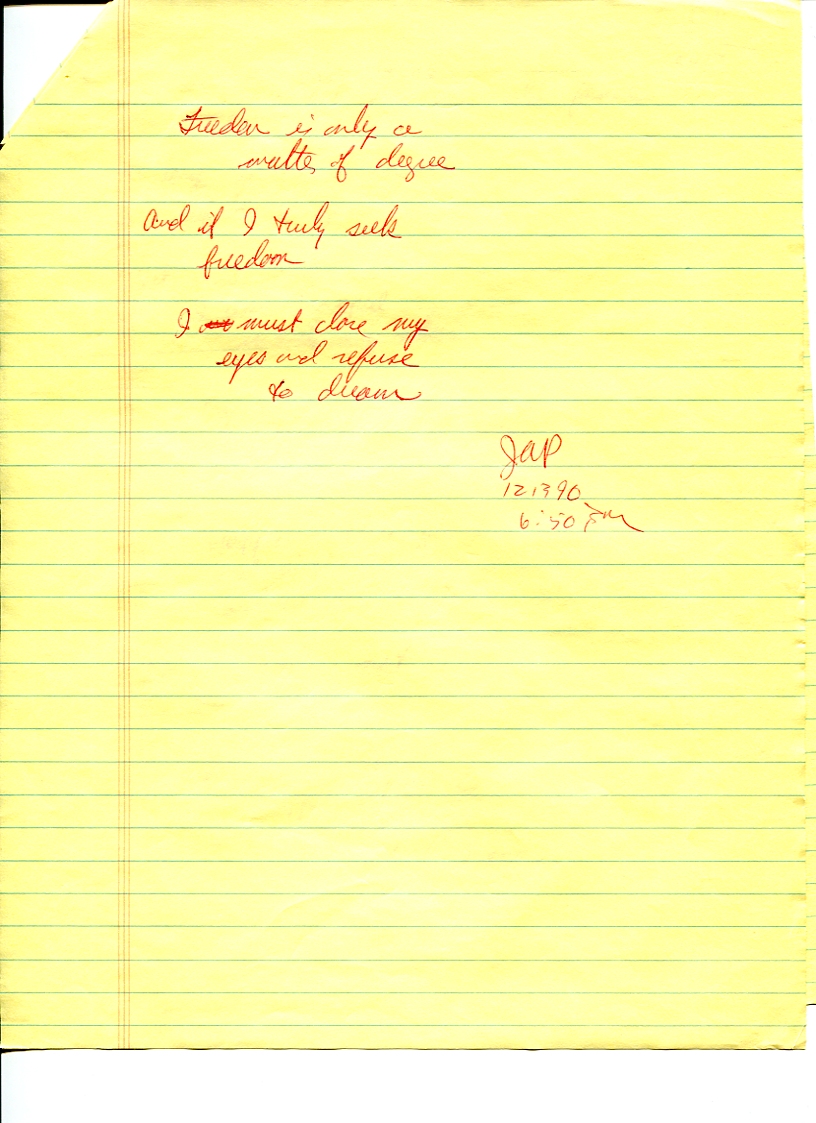 Freedom is only a
matter of degree
And if I truly seek
freedom
I must close my
eyes and refuse
to dream
JAP
121390
6:50 PM